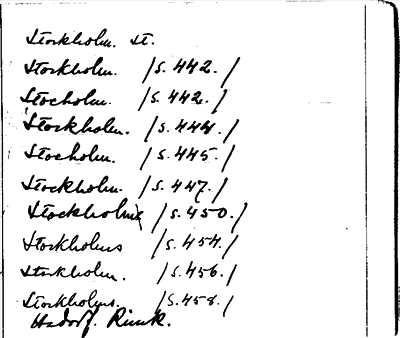 Stockholm. St.
Stockholm. /S. 442./
Stocholm. /S. 442./
Stockholm. /S. 444./
Stocholm. /S. 445./
Stockholm. /S. 447./
Stockholm /S. 450./
Stockholms /S. 454./
Stockholm. /S. 456./
Stockholms. /S. 458./
Hadorf. Rimk.